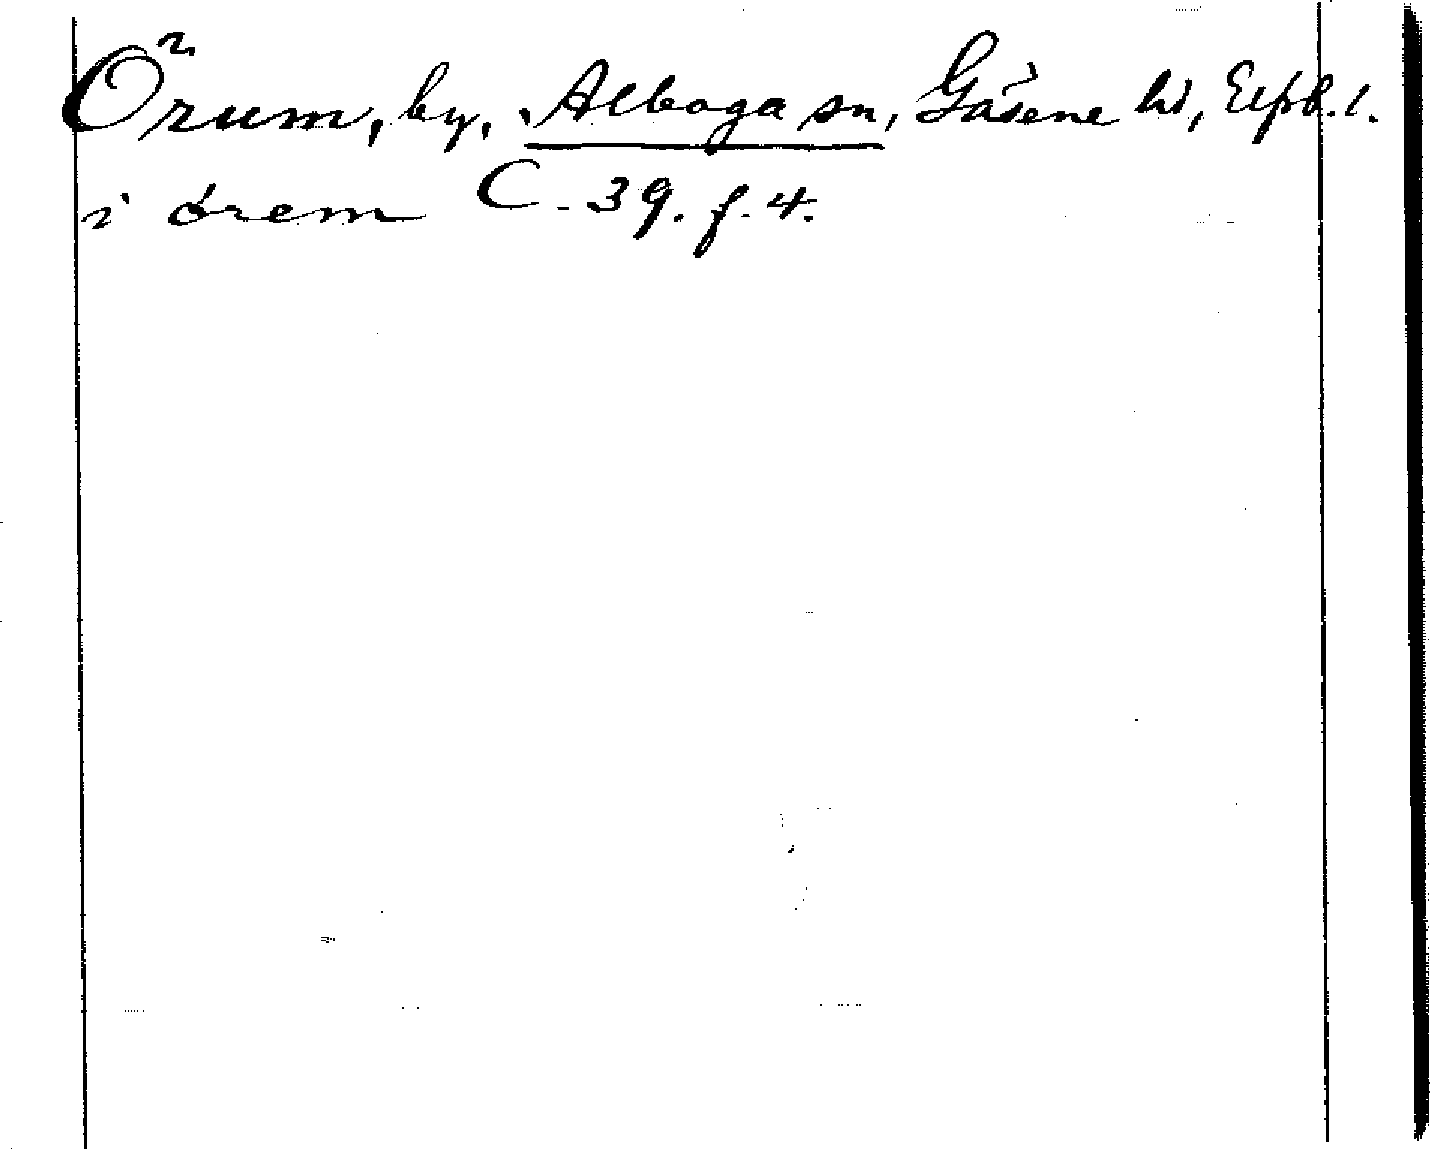 Örum, by, Alboga sn, Gäsene hd, Elfsb. l.
i órem C. 39. f. 4.